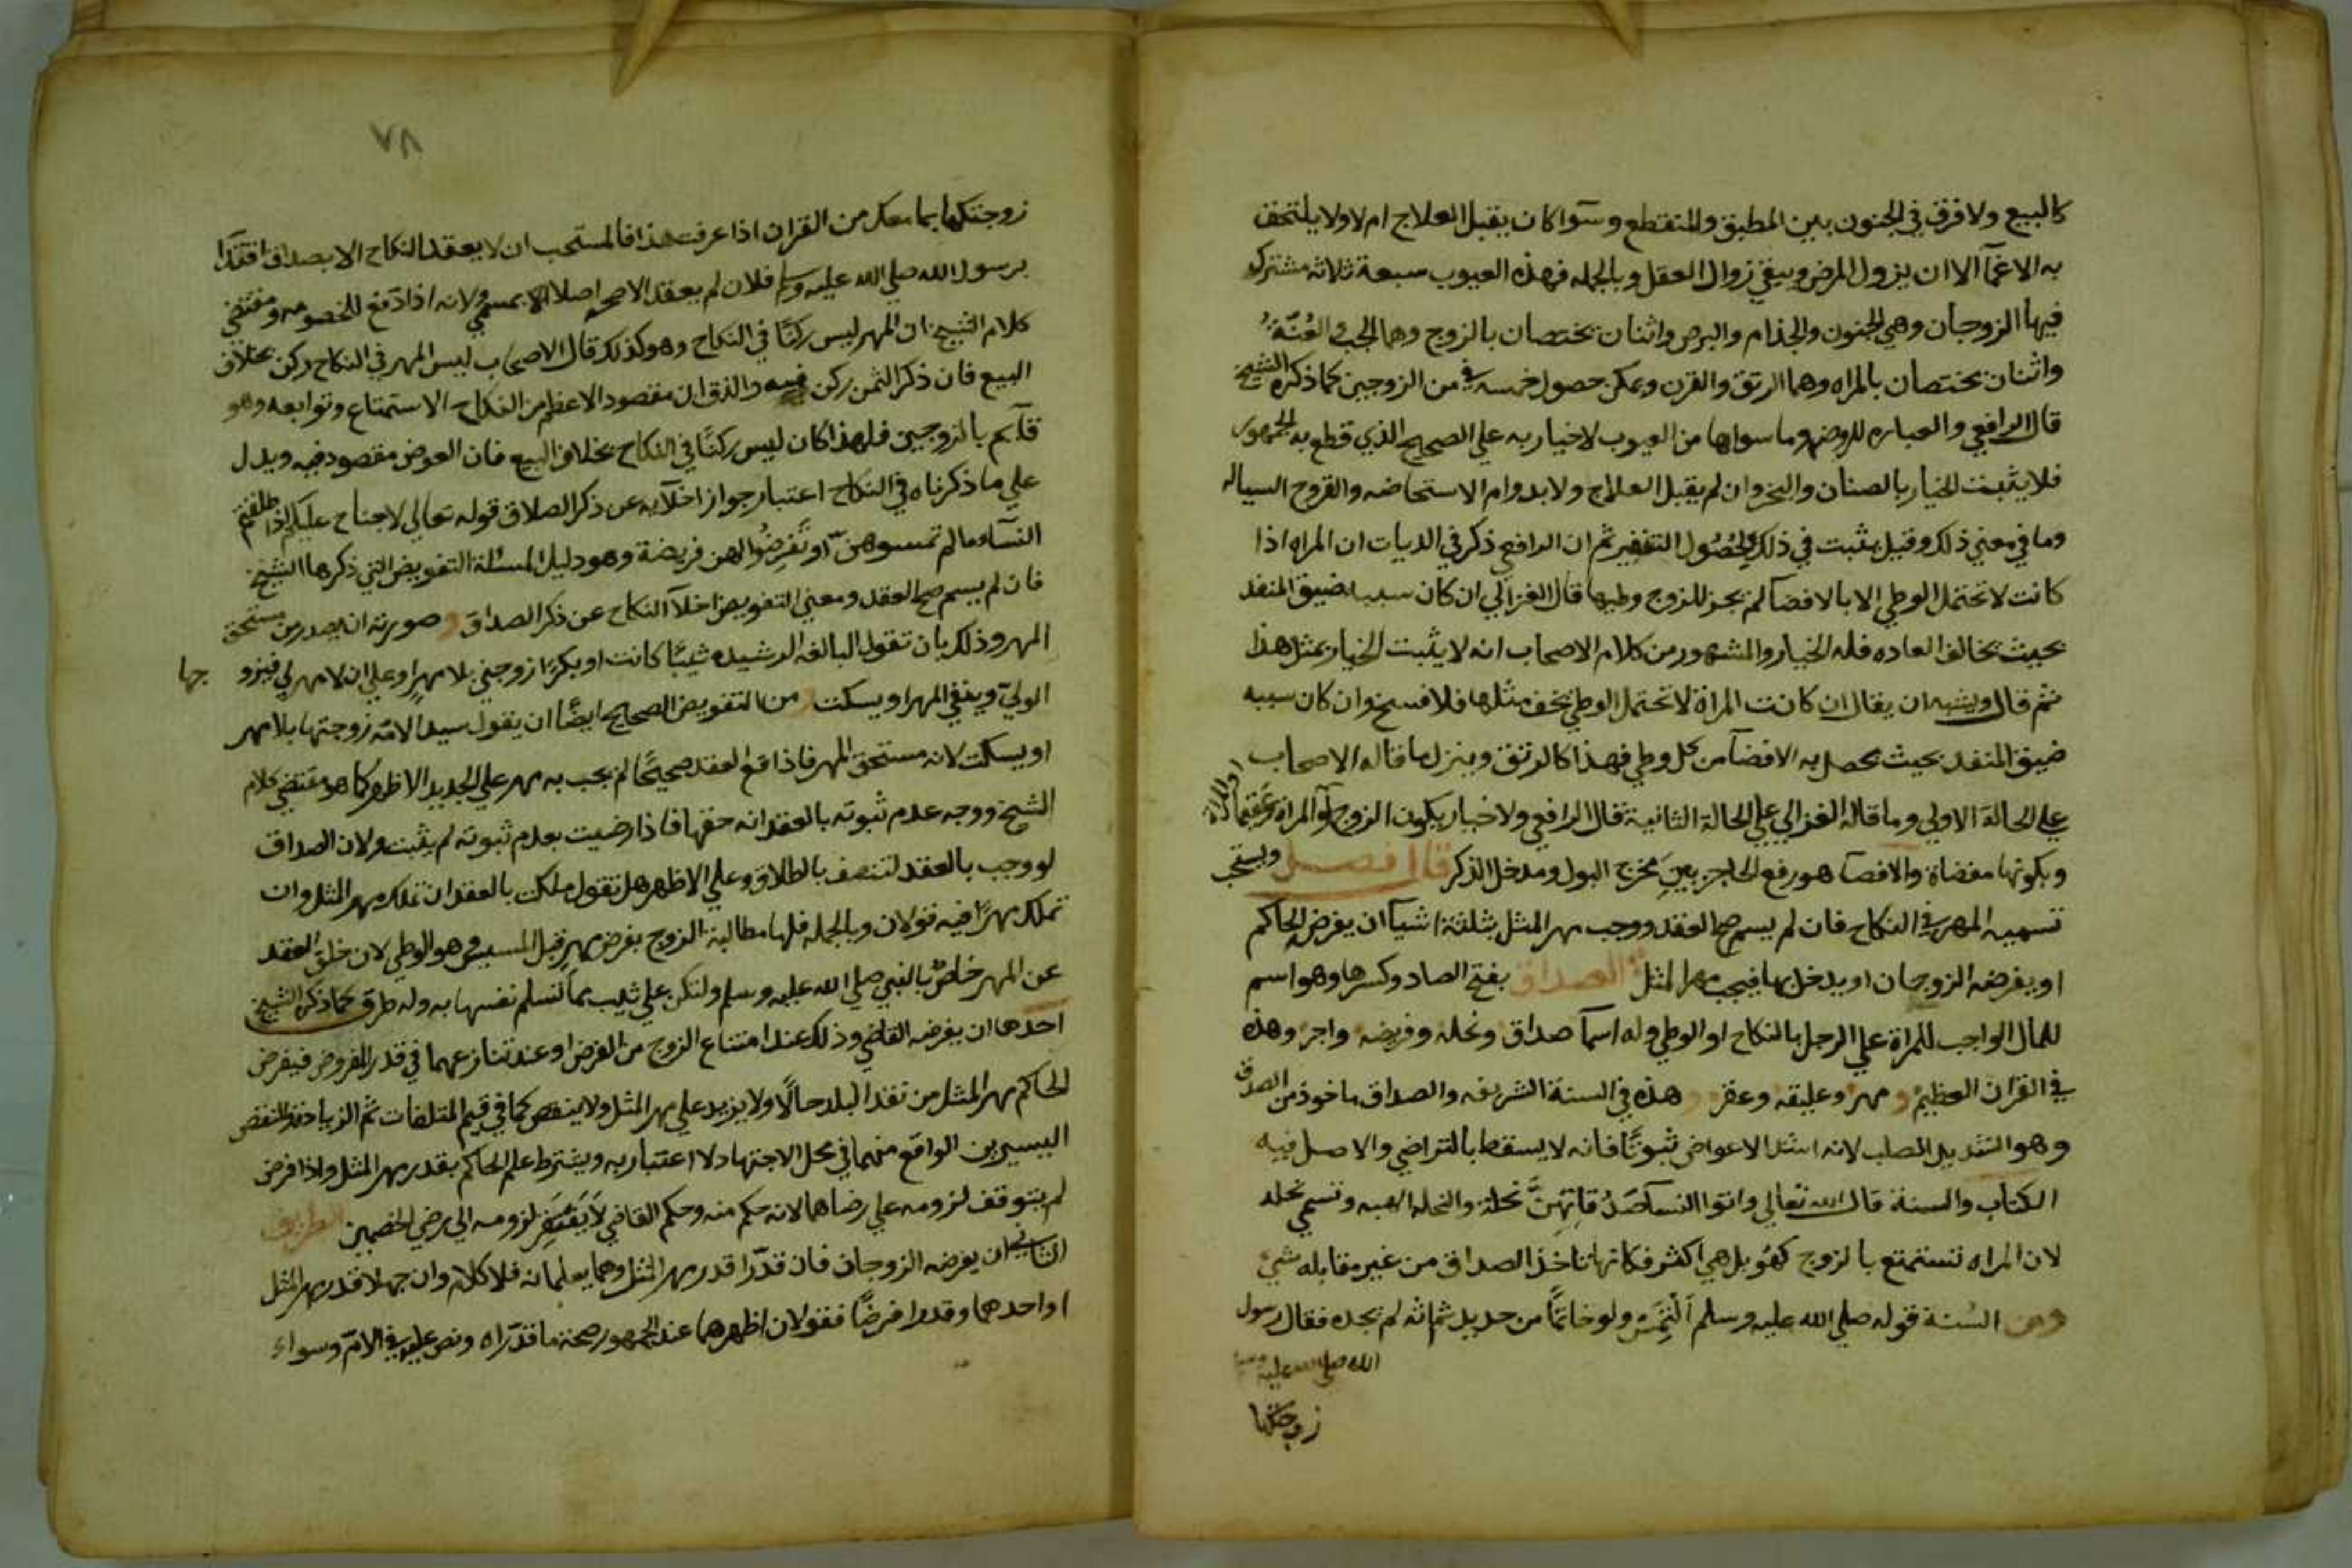 كالبيع ولا فرق في الجنون بين المطبق والمنقطع وسوآ كان يقبل العلاج ام لا ولا يلتحق
به الاغمآ الا ان يزول المرض ويبقي زوال العقل وبالجمله فهذه العيوب سبعة ثلاثه مشتركه
فيها الزوجان وهي الجنون والجذام والبرص واثنان يختصان بالزوج وهما الجب والعُنّةُ
واثنان يختصان بالمراه وهما الرتق والقرن ويمكن حصول خمسه في من الزوجين كما ذكره الشيخ
قال الرافعي والعباره للروضه وما سواها من العيوب لا خيار به علي الصحيح الذي قطع به الجمهور
فلا يثبت الخيار بالصنان والبخر وان لم يقبل العلاج ولا بدوام الاستحاضه والقروح السياله
وما في معني ذلك وقيل يثبت في ذلك لحُصُول التنفير ثم ان الرافعي ذكر في الديات ان المراه اذا
كانت لا تحتمل الوطي الا بالافضآ لم يجز للزوج وطيها قال الغزالي ان كان سببه ضيق المنفد
بحيث يخالف العاده فله الخيار والمشهور من كلام الاصحاب انه لا يثبت الخيار بمثل هذا
ثم قال ويشبه ان يقال ان كانت المراة لا تحتمل الوطي نحف مثلها فلا فسخ وان كان سببه
ضيق المنفد بحيث يحصل به الافضآ من كل وطي فهذا كالرتق وينزل ما قاله الاصحاب
علي الحالة الاولي وما قاله الغزالي علي الحالة الثانية قال الرافعي ولا خيار بكون الزوج او المراة عقيما
وبكونها مفضاة والافضآ هو رفع الحاجز بين مخرج البول ومدخل الذكر قال فصل ويستحب
تسميه المهر في النكاح فان لم يسم صح العقد ووجب مهر المثل بثلثة اشيآ ان يفرض الحاكم
او يفرضه الزوجان او يدخل بها فيجب مهر المثل الصداق بفتح الصاد وكسرها وهو اسم
للمال الواجب للمراة علي الرجل بالنكاح او الوطي وله اسمآ صداق ونحله وفريضه واجر وهذه
في القران العظيم و مهر وعليقه وعقر و هذه في السنة الشريفه والصداق ماخوذ من الصدق
وهو الشديد الصلب لانه اشد الاعواض ثبوتًا فانه لا يسقط بالتراضي والاصل فيه
الكتاب والسنة قال الله تعالي واتوا النسآ صَدُقاتِهِنَّ نحلة والنحله الهبه وتسمي نحله
لان المراه تستمتع بالزوج كهُو بل هي اكثر فكانها تاخذ الصداق من غير مقابله شيئ
ومن السُنة قوله صلي الله عليه وسلم اَلْتَمِسْ ولو خاتمًا من حديد ثم انه لم يجده فقال رسول
الله صلي الله عليه وسلم
زوجتكها
٧٨
زوجتكها بما معك من القران اذا عرفت هذا فالمستحب ان لا يعقد النكاح الا بصداق اقتدآ
برسول الله صلي الله عليه وسلم فلان لم يعقد الا بمسمي ولانه ادفع للخصومه ومقتضي
كلام الشيخ ان المهر ليس ركنًا في النكاح وهو كذلك قال الاصحاب ليس المهر في النكاح ركن بخلاف
البيع فان ذكر الثمن ركن فيه والفرق ان مقصود الاعظم من النكاح الاستمتاع وتوابعه وهو
قآيم بالزوجين فلهذا كان ليس ركنًا في النكاح بخلاف البيع فان العوض مقصود فيه ويدل
علي ما ذكرناه في النكاح اعتبار جواز اخلآيه عن ذكر الصداق قوله تعالي لا جناح عليكم اذا طلقتم
النسآ ما لم تمسوهنّ او تَفرِضُوا لهن فريضة وهو دليل المسئلة التفويض التي ذكرها الشيخ
فان لم يسم صح العقد ومعني التفويض اخلآ النكاح عن ذكر الصداق و صورته ان يصدر من مستحق
المهر وذلك بان تقول البالغه الرشيده ثيبًا كانت او بكرًا زوجني بلا مهرٍ او علي ان لا مهر لي فيزو جها
الولي وينفي المهر او يسكت و من التفويض الصحيح ايضًا ان يقول سيد الامّه زوجتها بلا مهر
او يسكت لانه مستحق المهر فاذا وقع العقد صحيحًا لم يجب به مهر علي الجديد الاظهر كما هو مقتضي كلام
الشيخ ووجه عدم ثبوته بالعقد انه حقها فاذا رضيت بعدم ثبوته لم يثبت ولان الصداق
لو وجب بالعقد لتنصف بالطلاق وعلي الاظهر هل تقول ملكت بالعقد ان تملك مهر المثل وان
تملك مهرًا فيه قولان وبالجمله فلها مطالبة الزوج بفرض مهرٍ قبل المسيس وهو الوطي لان خلو العقد
عن المهر خاصٌ بالنبي صلي الله عليه وسلم ولتكن علي ثبت مما تسلم نفسها به وله طرق كما ذكره الشيخ
احدها ان يفرضه القاضي وذلك عند امتناع الزوج من الفرض او عند تنازعهما في قدر المفروض فيفرض
الحاكم مهر المثل من نقد البلد حالًا ولا يزيد علي مهر المثل ولا ينقص كما في قيم المتلفات ثم الزياده والنقص
اليسيرين الواقع منهما في محل الاجتهاد لا اعتبار به ويشترط علم الحاكم بقدر مهر المثل واذا فرض
لم يتوقف لزومه علي رضاهما لانه حكم منه وحكم القاضي لا يَفْتَقِر لزومه الي رضي الخصمين الطريق
الثاني ان يفرضه الزوجان فان قدّرا قدر مهر المثل وهما يعلمانه فلا كلام وان جهلا قدر مهر المثل
او احدهما وقدرا فرضًا فقولان اظهرهما عند الجمهور صحة ما قدّراه ونص عليه في الامّ وسواء